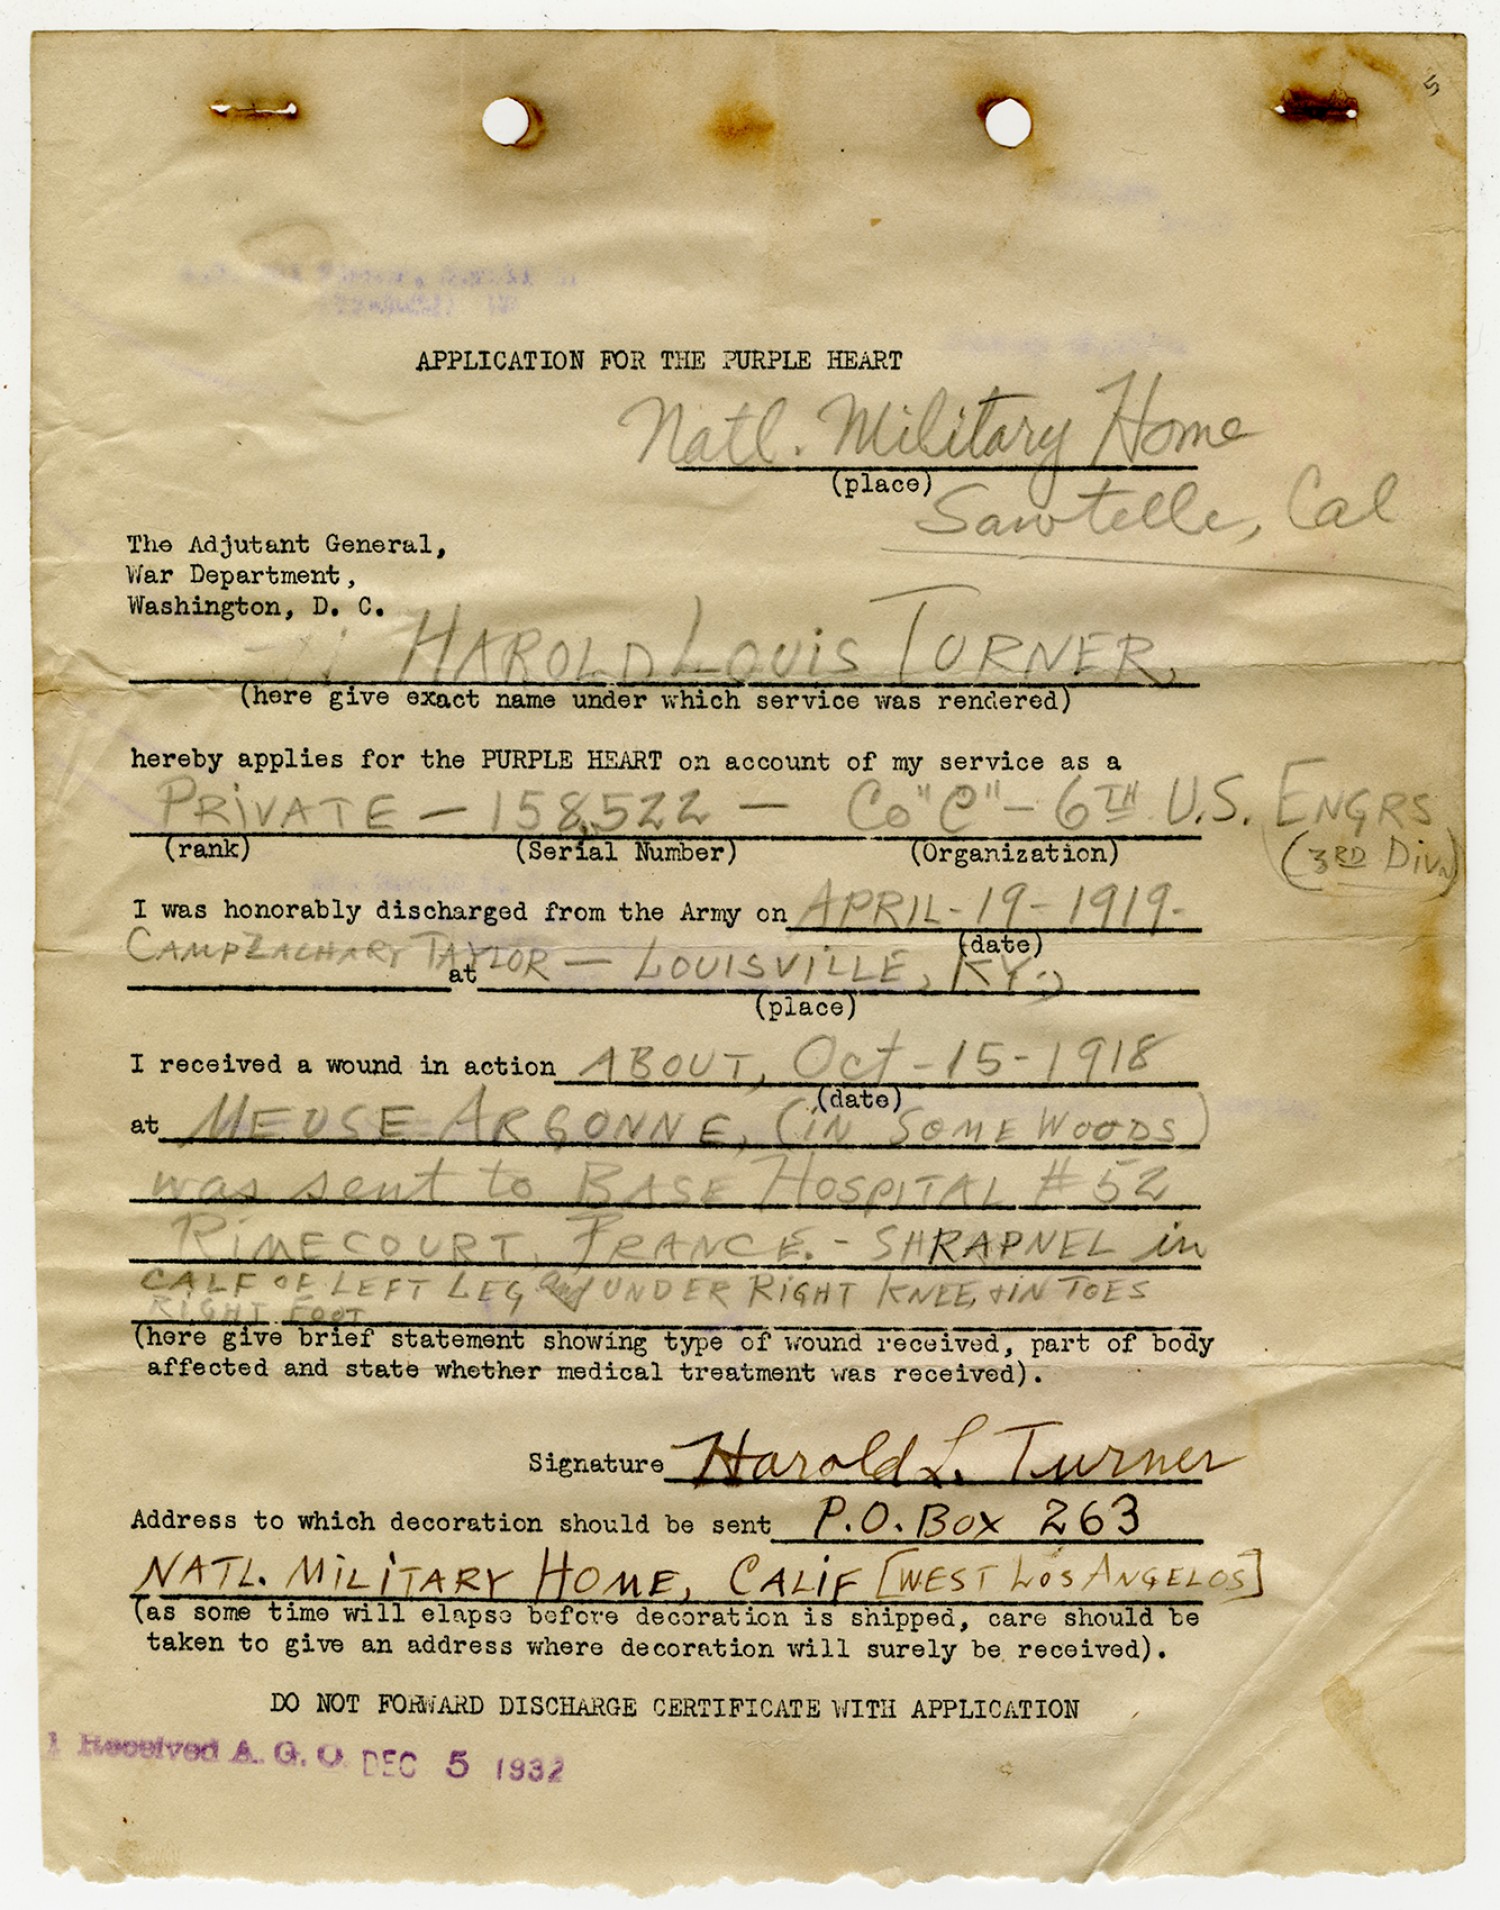 5
APPLICATION FOR THE PURPLE HEART
Natl. Military Home
(place)
Sawtelle, Cal
The Adjutant General,
War Department,
Washington, D. C.
HAROLD LOUIS TURNER,
(here give exact name under which service was rendered)
hereby applies for the PURPLE HEART on account of my service as a
PRIVATE — 158,522 — Co "C" — 6TH U.S. ENGRS
(rank) (Serial Number) (Organization) (3RD Divn)
I was honorably discharged from the Army on APRIL - 19 - 1919 -
(date)
CAMP ZACHARY TAYLOR — LOUISVILLE, KY.,
at
(place)
I received a wound in action ABOUT, Oct - 15 - 1918
(date)
at MEUSE ARGONNE, (IN SOME WOODS)
was sent to BASE HOSPITAL # 52
RIMECOURT, FRANCE. - SHRAPNEL in
CALF OF LEFT LEG and UNDER RIGHT KNEE, + IN TOES
RIGHT FOOT
(here give brief statement showing type of wound received, part of body
affected and state whether medical treatment was received).
Signature Harold L. Turner
Address to which decoration should be sent P.O. Box 263
NATL. MILITARY HOME, CALIF [WEST LOS ANGELOS]
(as some time will elapse before decoration is shipped, care should be
taken to give an address where decoration will surely be received).
DO NOT FORWARD DISCHARGE CERTIFICATE WITH APPLICATION
1 Received A. G. O. DEC 5 1932